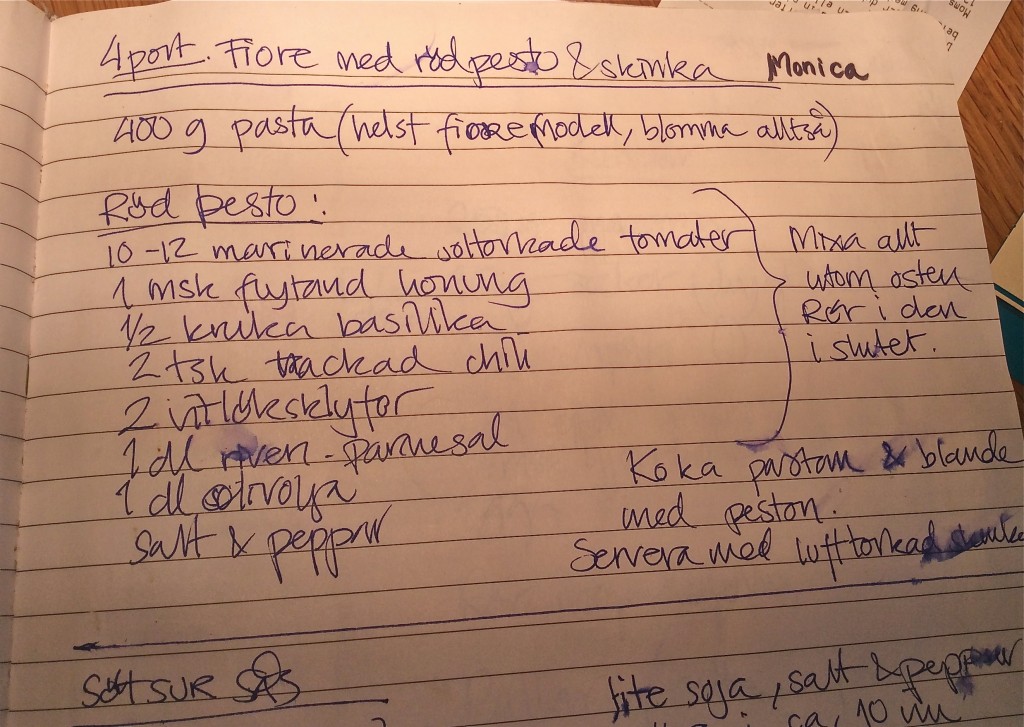 4 port. Fiore med röd pesto & skinka Monica
400 g pasta (helst fiore modell, blomma alltså)
Röd pesto:
10-12 marinerade soltorkade tomater
1 msk flytand honung
1/2 kruka basilika
2 tsk hackad chili
2 vitlöksklyftor
1 dl riven parmesal
1 dl olivolja
salt & peppar
Mixa allt
utom osten
Rör i den
i slutet.
Koka pastan & blanda
med peston.
Servera med lufttorkad skinka
SÖTSUR SÅS
lite soja, salt & peppar
ca, 10 min